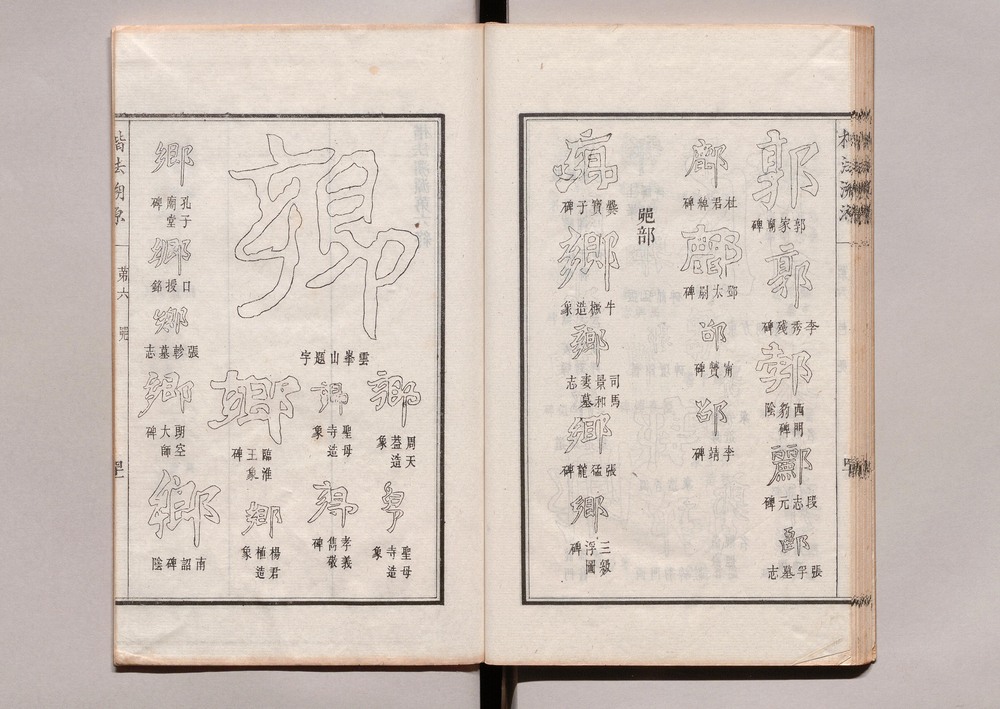 郭
郭家廟碑
郭
李秀殘碑
郭
西門豹碑陰
酈
段志元碑
張孚墓志
杜君綽碑
鄧太尉碑
甯贊碑
李靖碑
𨛜部
爨寶子碑
鄉
牛橛造象
鄉
司馬景和妻墓志
鄉
張猛龍碑
鄉
三級浮圖碑
鄉
雲峯山題字
鄉
周天蓋造象
鄉
聖母寺造象
鄉
聖母寺造象
鄉
孝義雋敬碑
鄉
臨淮王象碑
鄉
楊君植造象
鄉
孔子廟堂碑
鄉
口授銘
鄉
張軫墓志
鄉
明空大師碑
鄉
南詔碑陰
楷法溯原
第六